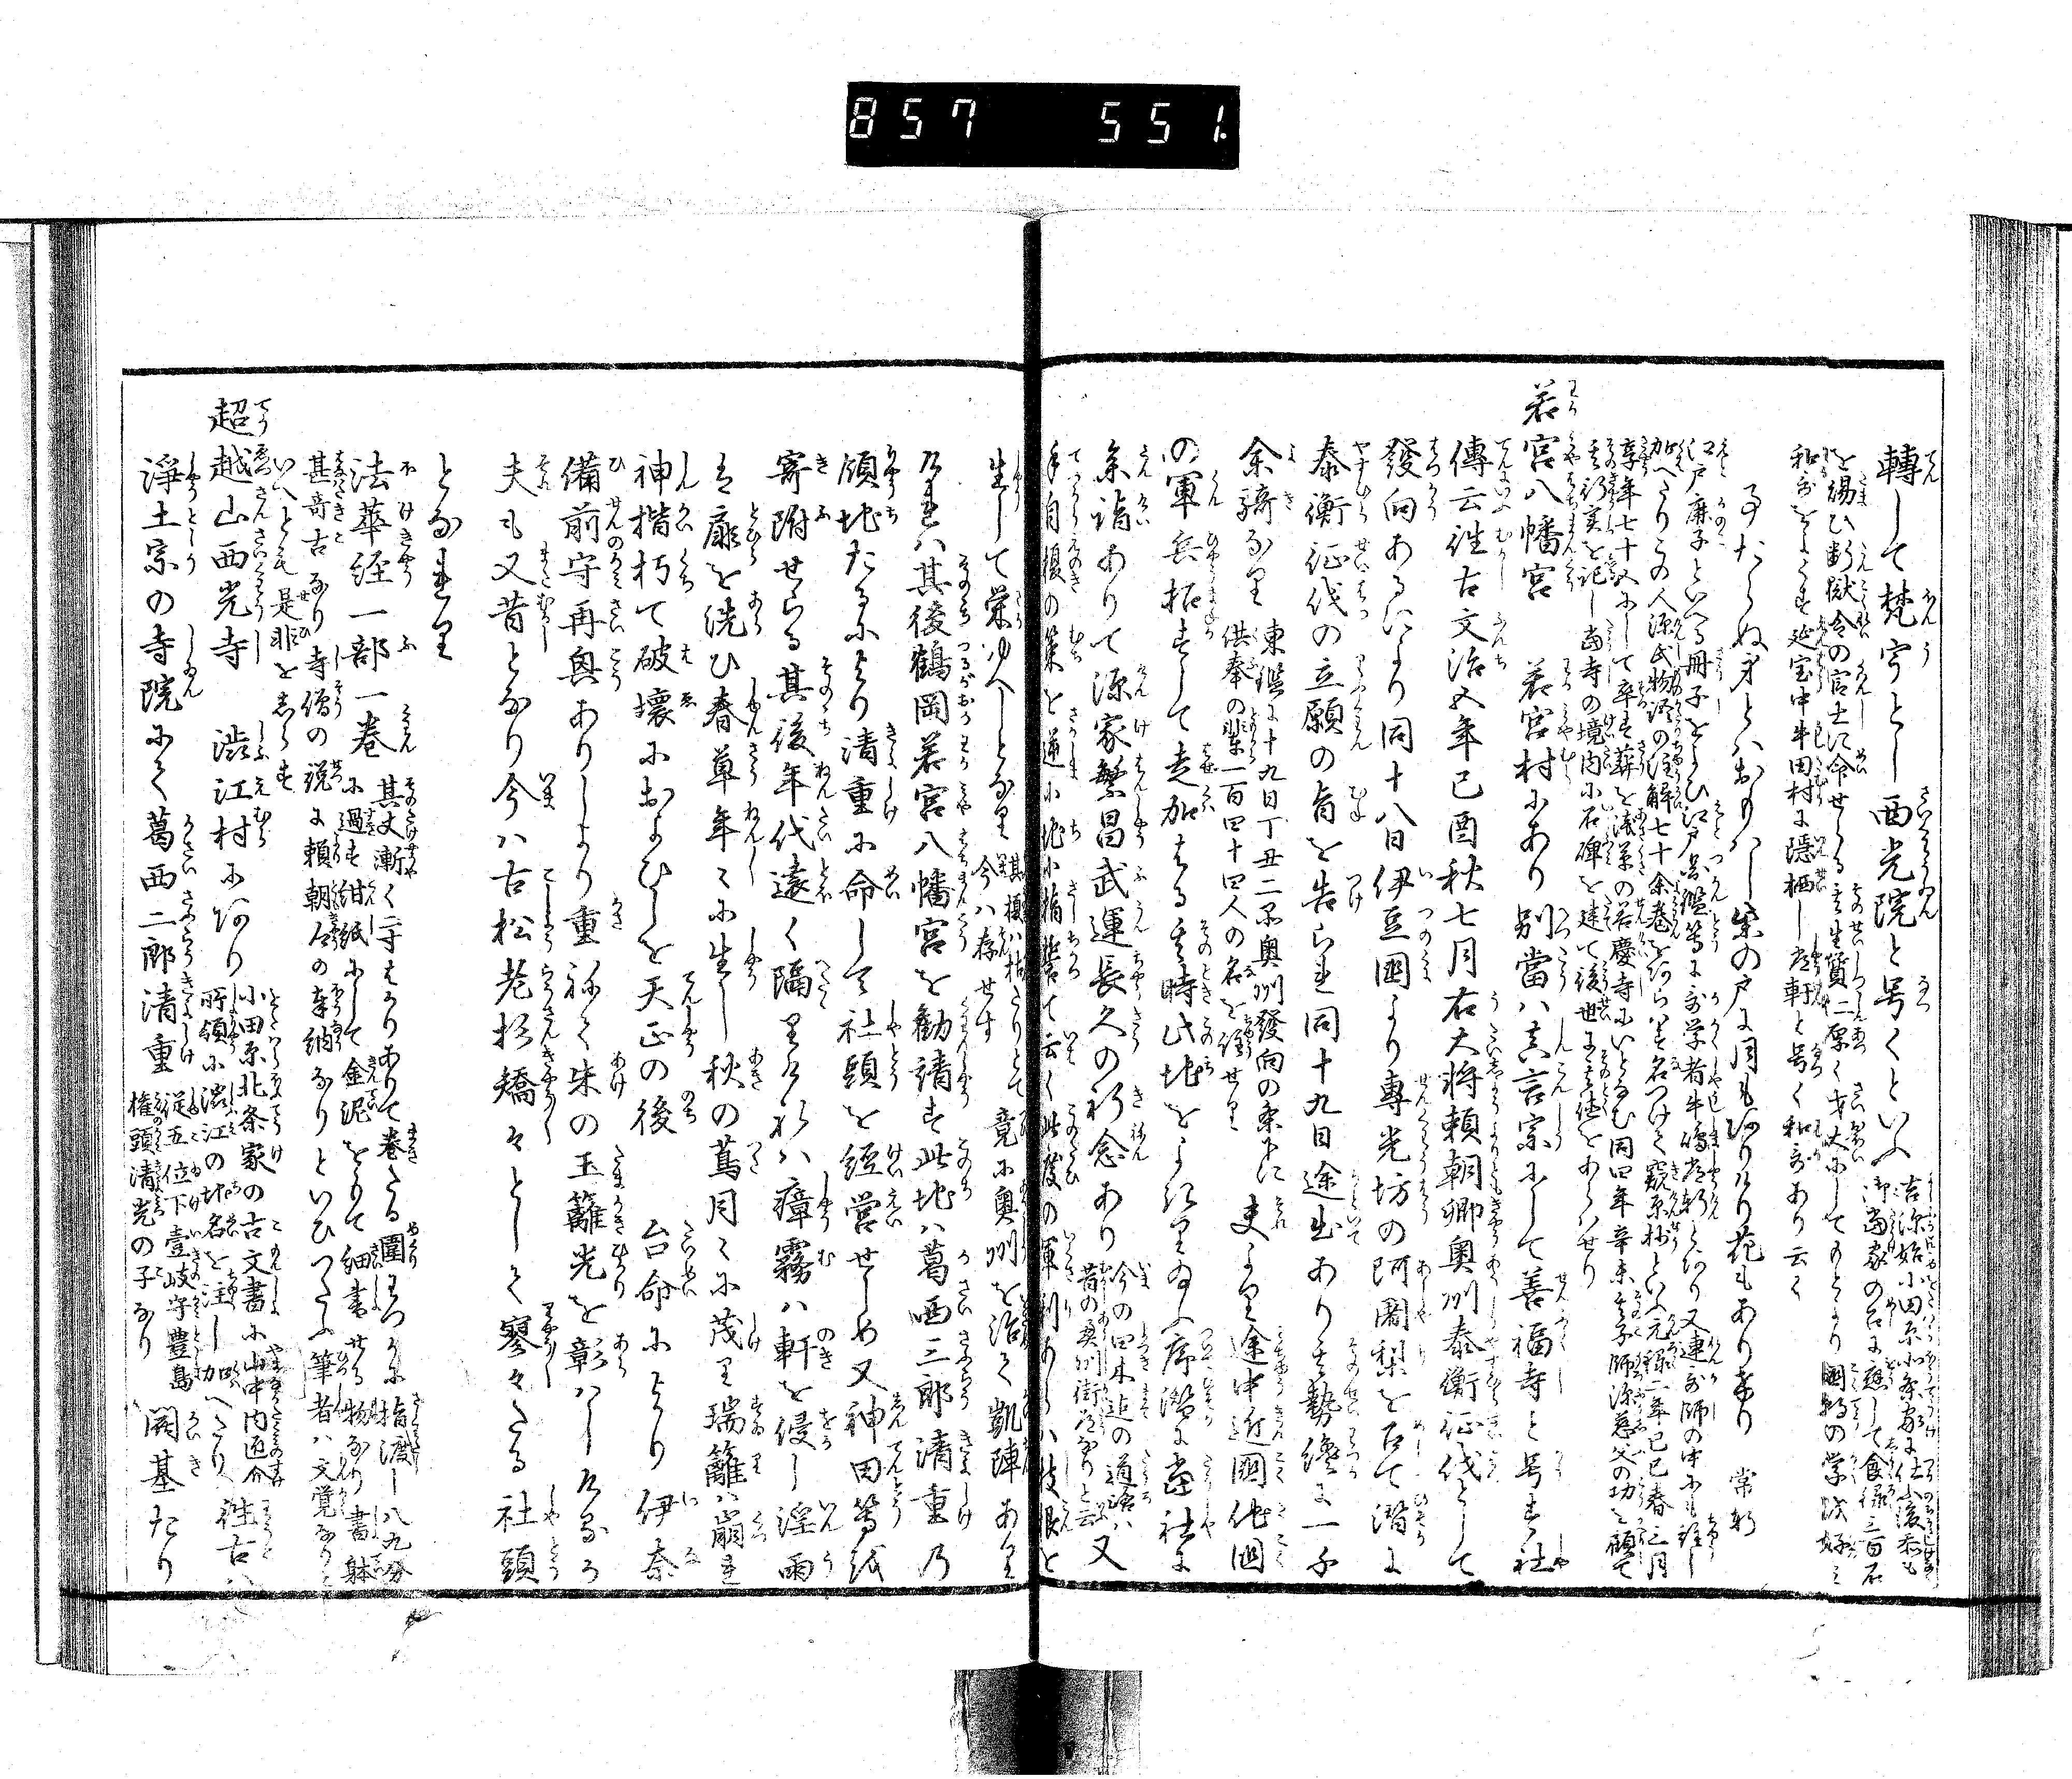 857 551.
轉して梵宇とし西光院と号くといふ
を賜ひ断獄令の官士に命せらる其生質仁厚く
和哥をよくす延宝中牛田村に隠栖し 軒と号く和哥あり云く
身たらぬ身とハおもハし柴の戸に月もありけり花もありけり 常軒
江戸鹿子といへる冊子をよひ江戸 鑑等に哥学者牛嶋 軒とあり又連哥師の中にも
加へたりこの人源氏物語の注解七十余巻をあらハす名つけて窺原抄といふ元禄二年己巳春三月
享年七十又にして卒す 慶寺に 同四年辛未其子師源慈父の功を顧て
其 実を記し當寺の境内に石碑を建て後世に其徳をあらハせり
若宮八幡宮 若宮村にあり別當ハ真言宗にして善福寺と号す社
傳云徃古文治五年己酉秋七月右大将頼朝卿奥州泰衡征伐として
發向あるにより同十八日伊豆國より專光坊の阿闍梨を召て潜に
泰衡征伐の立願の旨を告られ同十九日途出あり其勢纔に一千
余騎なり 東鑑に十九日丁丑二品奥州發向の条下に
供奉の輩一百四十四人の名を註せり 夫より途中近國他國
の軍兵招すして走加はる其時此地をよきりたまふ序潜に當社に
参詣ありて源家繁昌武運長久の祈念あり 今の四木辺の道路ハ
昔の奥州街道なりと云 又
手自榎の策を逆に地に插誓て云く此度の軍利あらハ枝根を
生して栄ゆへしとなり 其榎ハ枯たりとて
今ハ存せす 竟に奥州を治て凱陣あり
けれハ其後鶴岡若宮八幡宮を勧請す此地ハ葛西三郎清重の
領地たるにより清重に命して社頭を経営せしめ又神田等を
寄附せらる其後年代遠く隔りけれハ瘴霧ハ軒を侵し淫雨
は扉を洗ひ春草年々に生し秋の蔦月々に茂り瑞籬ハ崩れ
神楷朽て破壊におよひしを天正の後 台命により伊奈
備前守再興ありしより重ねて朱の玉籬光を彰ハしけるか
夫も又昔となり今ハ古松老杉矯々として寥々たる社頭
となれり
法華経一部一巻 其丈漸く二寸はかりありて巻たる圍わつかに指渡し八九分
に過す紺紙にして金泥をもて細書せる物なり書躰
甚奇古なり寺僧の説に頼朝公の奉納なりといひつたふ筆者ハ文覚なりと
いへとも是非をしらす
超越山西光寺 渋江村にあり 小田原北条家の古文書に山中内匠介
所領に澁江の地名を注し加へたり 徃古ハ
淨土宗の寺院にて葛西三郎清重 従五位下壹岐守豊島
権頭清光の子なり 開基たり